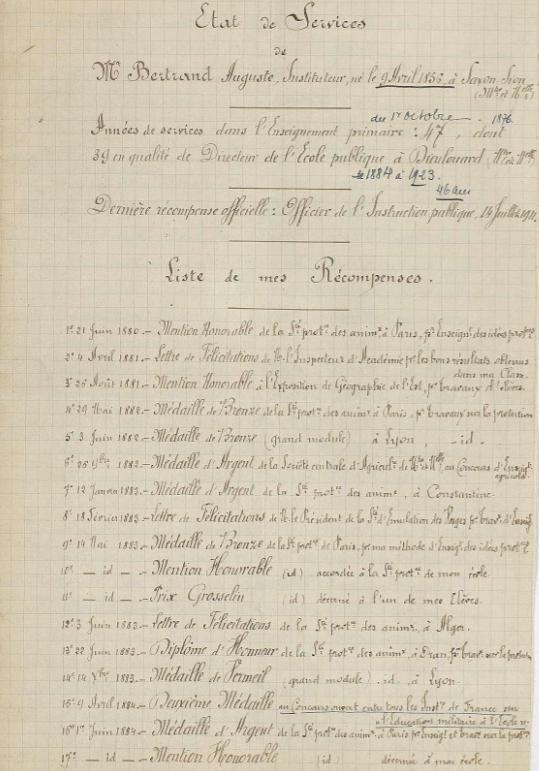 Etat de Services
de
Mr Bertrand Auguste, Instituteur, né le 9 Avril 1856 à Saxon-Sion
(Mthe et Mlle)
du 1er octobre 1876
Années de services dans l'Enseignement primaire : 47, dont
39 en qualité de Directeur de l'Ecole publique à (Mthe et Mlle)
de 1884 à 1923.
46 ans
Dernière récompense officielle : Officier de l'Instruction publique, 14 Juillet 1911.
Liste de mes Récompenses.
1º 21 Juin 1880. – Mention Honorable de la Sté protce des animx à Paris, pr Enseignt des idées protces
2º 4 Avril 1881. – Lettre de Félicitations de M. l'Inspecteur d'Académie pr les bons résultats obtenus
dans ma Classe.
3º 26 Août 1881 – Mention Honorable à l'Exposition de Géographie de l'Est, pr travaux d'Elèves.
4º 29 Mai 1882. – Médaille de Bronze de la Sté protce des animx à Paris, pr travaux sur la protection
5º 3 Juin 1882 – Médaille de Bronze (grand module) à Lyon – id –
6º 26 9bre – Médaille d'Argent de la Société centrale d'Agricult. de Mthe et Mlle, au Concours d'Enseigt
agricole.
7º 12 Janvier 1883. – Médaille d'Argent de la Sté protce des animx, à Constantine
8º 18 Février 1883 – Lettre de Félicitations de M. le Président de la Sté d'Emulation des Vosges pr travx d'Enseigt
9º 14 Mai 1883. – Médaille de Bronze de la Sté protce de Paris, pr ma méthode d'Enseigt des idées protces
10º – id – – Mention Honorable (id) accordée à la Sté protce de mon école.
11º – id – – Prix Grosselin (id) décerné à l'un de mes Elèves.
12º 3 Juin 1883. – Lettre de Félicitations de la Sté protce des animx, à Alger.
13º 22 Juin 1883. – Diplôme d'Honneur de la Sté protce des animx, à Oran, pr travx sur la protection
14º 14 Xbre 1883. – Médaille de Vermeil (grand module) id. à Lyon
15º 9 Avril 1884. – Deuxième Médaille au Concours ouvert entre tous les Instrs de France sur
l'Education militaire à l'Ecole
16º 1er Juin 1884 – Médaille d'Argent de la Sté protce des animx, à Paris pr Enseigt et travx sur la prot.
17º – id – – Mention Honorable (id) décernée à mon école.